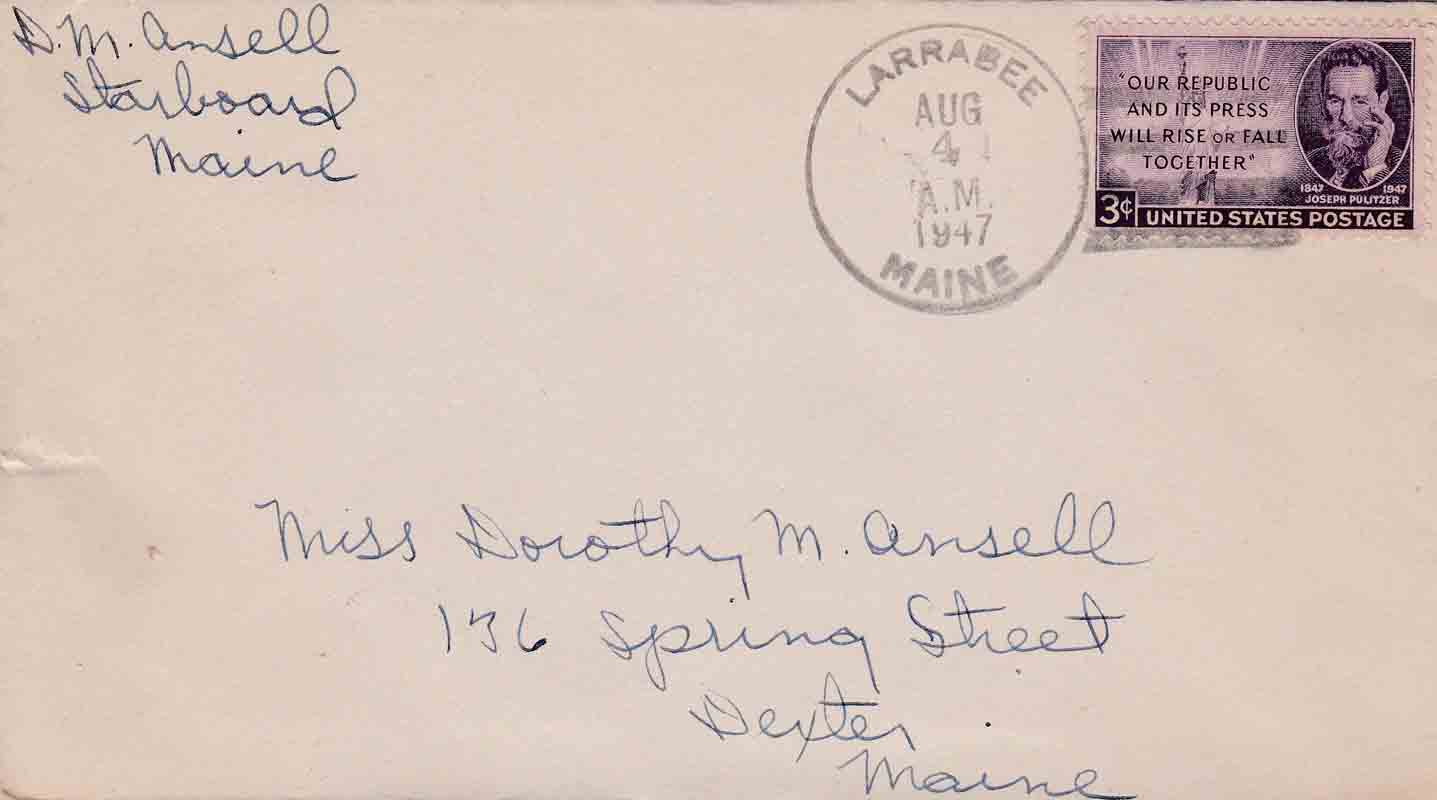 D. M. Ansell
Starboard
Maine
LARRABEE
AUG
4
A.M.
1947
MAINE
"OUR REPUBLIC
AND ITS PRESS
WILL RISE OR FALL
TOGETHER"
1847 1947
JOSEPH PULITZER
3¢ UNITED STATES POSTAGE
Miss Dorothy M. Ansell
136 Spring Street
Dexter
Maine